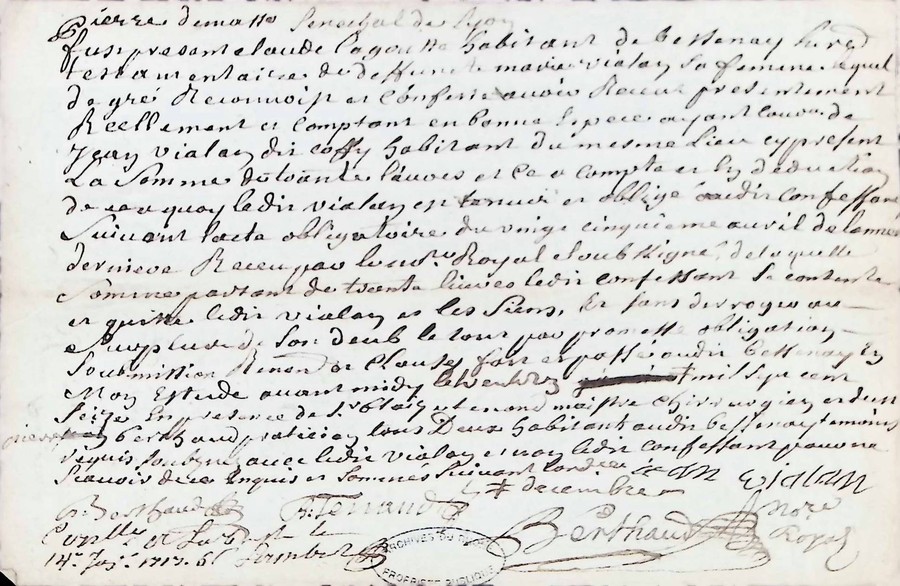 Pierre de masso Senechal de Lyon
fust present claude Lagoutte habitant de bessenay hered
testamentaire de deffuncte marie vialan sa femme lequel
de gré Reconnoist et confesse avoir Receu presentement
Reellement et comptant en bonne espece ayant cours de
Jean vialan dit coffy habitant du mesme lieu cy present
La somme de trante livres et ce a compte et en deduction
de ce a quoy ledit vialan est tenu et obligé audit confessant
suivant lacte obligatoire du vingt cinquieme avril de lannée
derniere Receu par le nore Royal soubsigné, de laquelle
somme partant de trante livres ledit confessant se contente
et quitte ledit vialan et les siens, Et sans deroger au
surplus de son deub le tout par promesse obligation
soubmission Renon et clauses fait et passé audit bessenay En
Mon Estude avant midy le mil sept cent
seize En presence de Sr blaize maistre chirurgien et
berthaud praticien tous Deux habitant audit bessenay temoins
requis soubsignes avec ledit vialan et non ledit confessant pour ne
scavoir de ce Enquis et sommés suivant lordce Jean vialan
decembre
Berthaud ferrand
Berthaud Nore Royal
Con̄tlle et
14e 1717
ARCHIVES DU RHONE
PROPRIETE PUBLIQUE